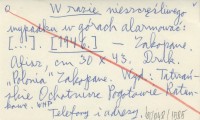 W razie nieszczęśliwego
wypadku w górach alarmować:
[...]. [1946.] — Zakopane.
Afisz, cm 30 x 43. Druk.
"Polonia" Zakopane. Wyd. Tatrzań-
skie Ochotnicze Pogotowie Ratun-
kowe.
Telefony i adresy.